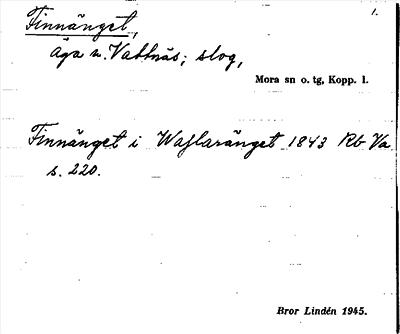 1.
Finnänget,
äga n. Vattnäs; slog,
Mora sn o. tg, Kopp. l.
Finnänget i Waslaränget 1843 Rb Va
s. 220.
Bror Lindén 1945.